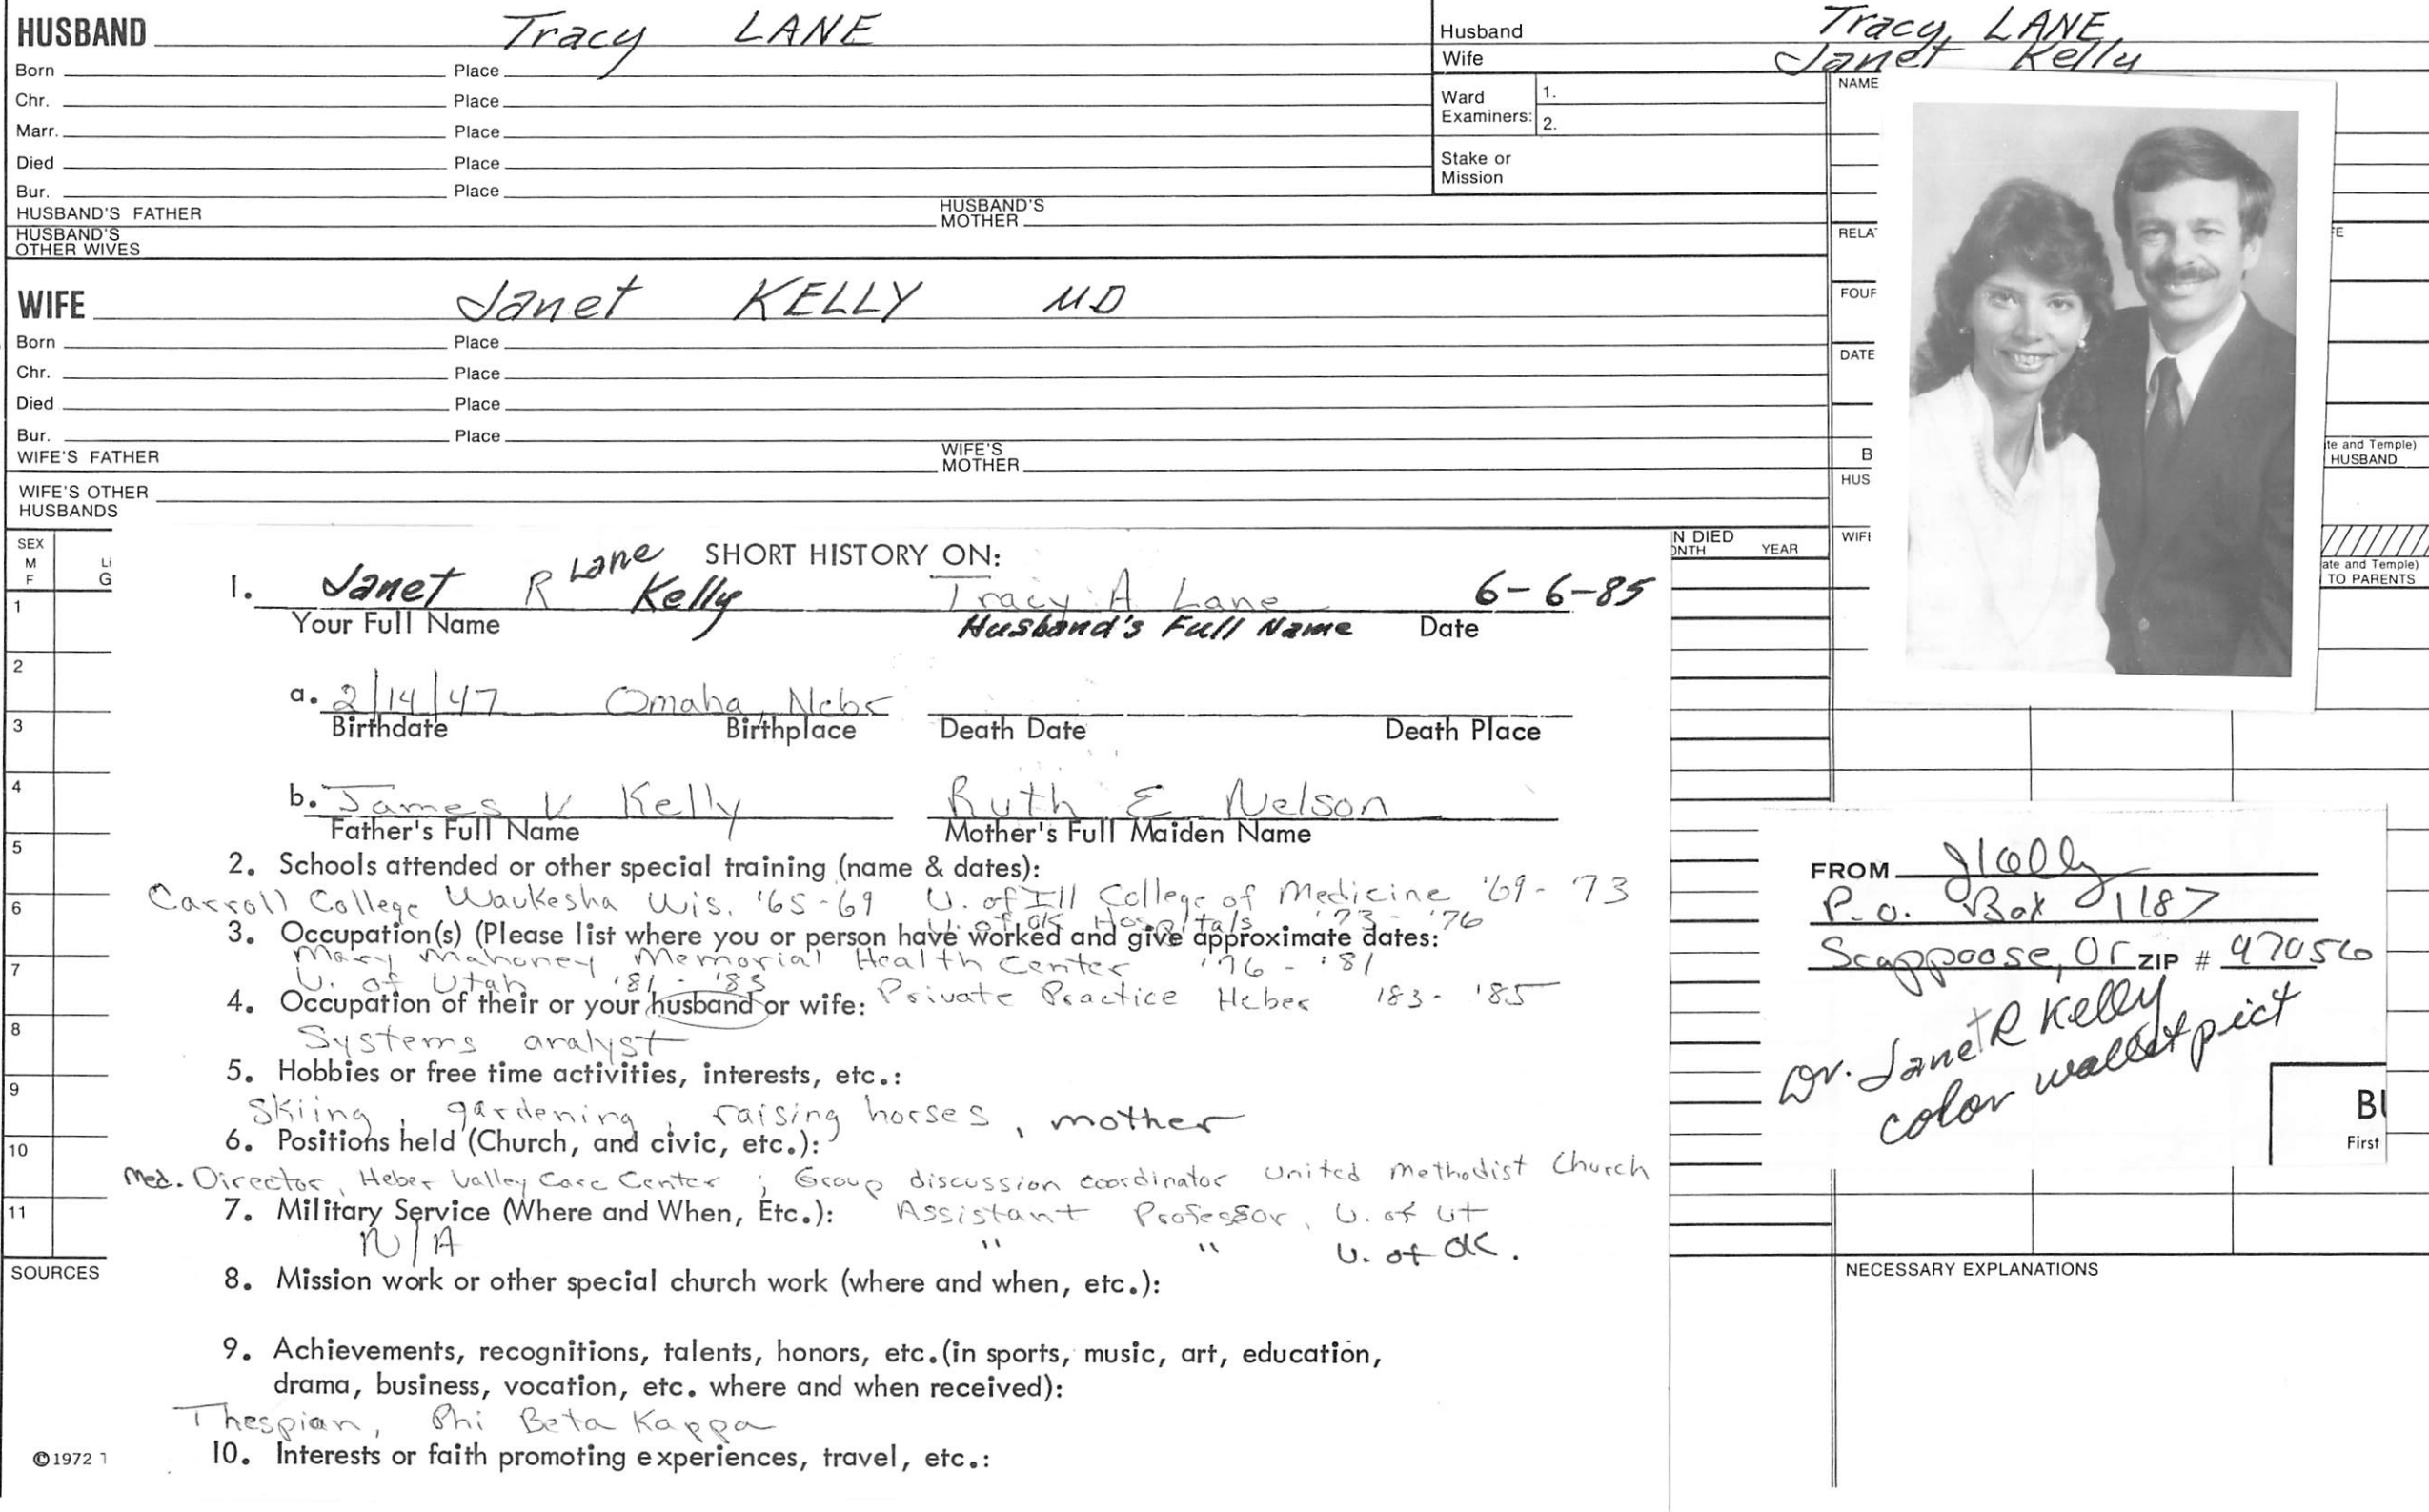 HUSBAND Tracy LANE
Born Place
Chr. Place
Marr. Place
Died Place
Bur. Place
HUSBAND'S FATHER HUSBAND'S MOTHER
HUSBAND'S OTHER WIVES
WIFE Janet KELLY MD
Born Place
Chr. Place
Died Place
Bur. Place
WIFE'S FATHER WIFE'S MOTHER
WIFE'S OTHER HUSBANDS
Husband Tracy LANE
Wife Janet Kelly
Ward Examiners: 1.
2.
Stake or Mission
NAME
RELA
FE
FOUR
DATE
B
HUS
te and Temple)
HUSBAND
WIFE
ate and Temple)
TO PARENTS
SEX
M
F
LI
G
N DIED
ONTH YEAR
1
2
3
4
5
6
7
8
9
10
11
SOURCES
©1972
SHORT HISTORY ON:
1. Janet R Lane Kelly Tracy A Lane 6-6-85
Your Full Name Husband's Full Name Date
a. 2/14/47 Omaha, Nebr
Birthdate Birthplace Death Date Death Place
b. James V Kelly Ruth E Nelson
Father's Full Name Mother's Full Maiden Name
2. Schools attended or other special training (name & dates):
Carroll College Waukesha Wis. '65-69 U. of Ill College of Medicine '69-'73
U. of OK Hospitals '73-'76
3. Occupation(s) (Please list where you or person have worked and give approximate dates:
Mary Mahoney Memorial Health Center '76-'81
U. of Utah '81-'83
4. Occupation of their or your husband or wife: Private Practice Heber '83-'85
Systems analyst
5. Hobbies or free time activities, interests, etc.:
Skiing, gardening, raising horses, mother
6. Positions held (Church, and civic, etc.):
Med. Director, Heber Valley Care Center ; Group discussion coordinator United Methodist Church
7. Military Service (Where and When, Etc.): Assistant Professor, U. of Ut
N/A " " U. of OK.
8. Mission work or other special church work (where and when, etc.):
9. Achievements, recognitions, talents, honors, etc.(in sports, music, art, education,
drama, business, vocation, etc. where and when received):
Thespian, Phi Beta Kappa
10. Interests or faith promoting experiences, travel, etc.:
FROM JKelly
P.O. Box 1187
Scappoose, Or ZIP # 97056
Dr. Janet R Kelly
color wallet pict
BU
First
NECESSARY EXPLANATIONS